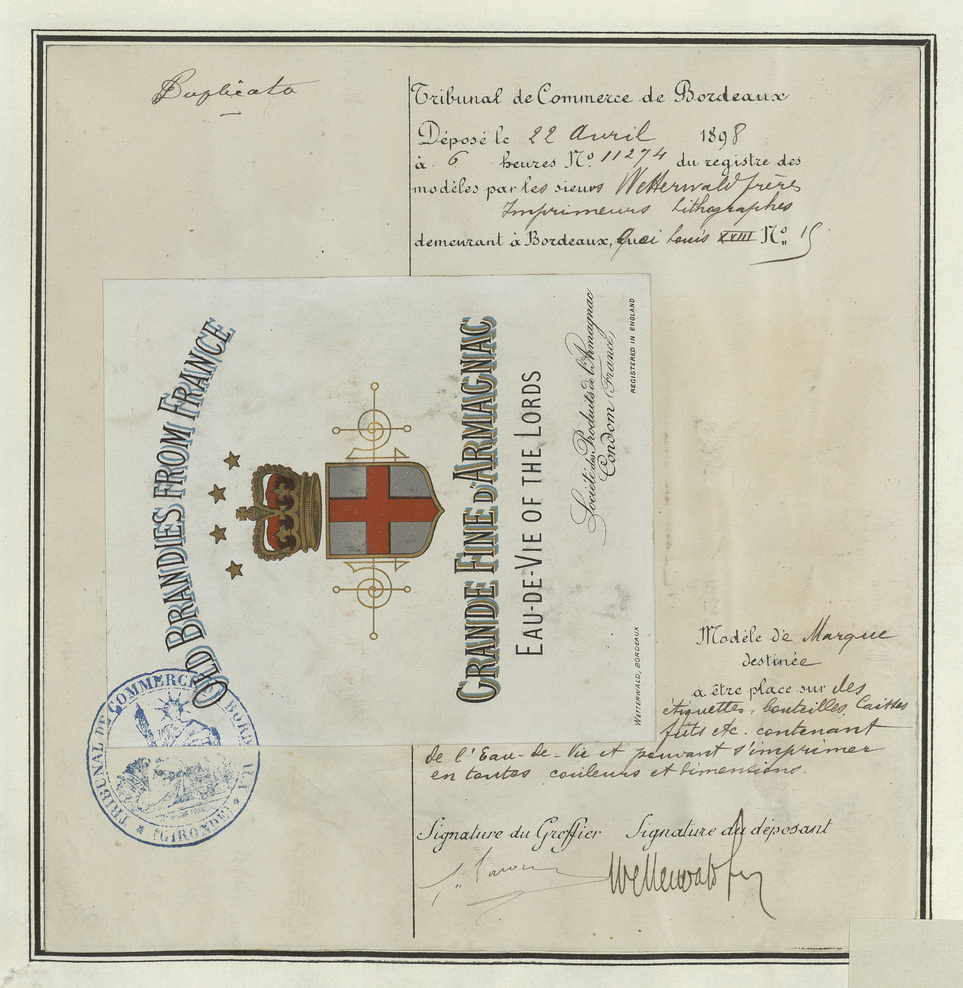 Duplicata
Tribunal de Commerce de Bordeaux
Déposé le 22 Avril 1898
à 6 heures No. 11274 du registre des
modèles par les sieurs Wetterwald frères
Imprimeurs Lithographes
demeurant à Bordeaux, Quai Louis XVIII No. 15
OLD BRANDIES FROM FRANCE
GRANDE FINE D'ARMAGNAC
EAU-DE-VIE OF THE LORDS
Société des Produits de l'Armagnac
Condom (France)
REGISTERED IN ENGLAND
WETTERWALD, BORDEAUX
Modèle de Marque
destinée
à être place sur des
étiquettes, bouteilles, Caisses
fûts etc. contenant
de l'Eau-de-Vie et pouvant s'imprimer
en toutes couleurs et dimensions.
TRIBUNAL DE COMMERCE BORDEAUX
(GIRONDE)
Signature du Greffier Signature du déposant
Wetterwald fr